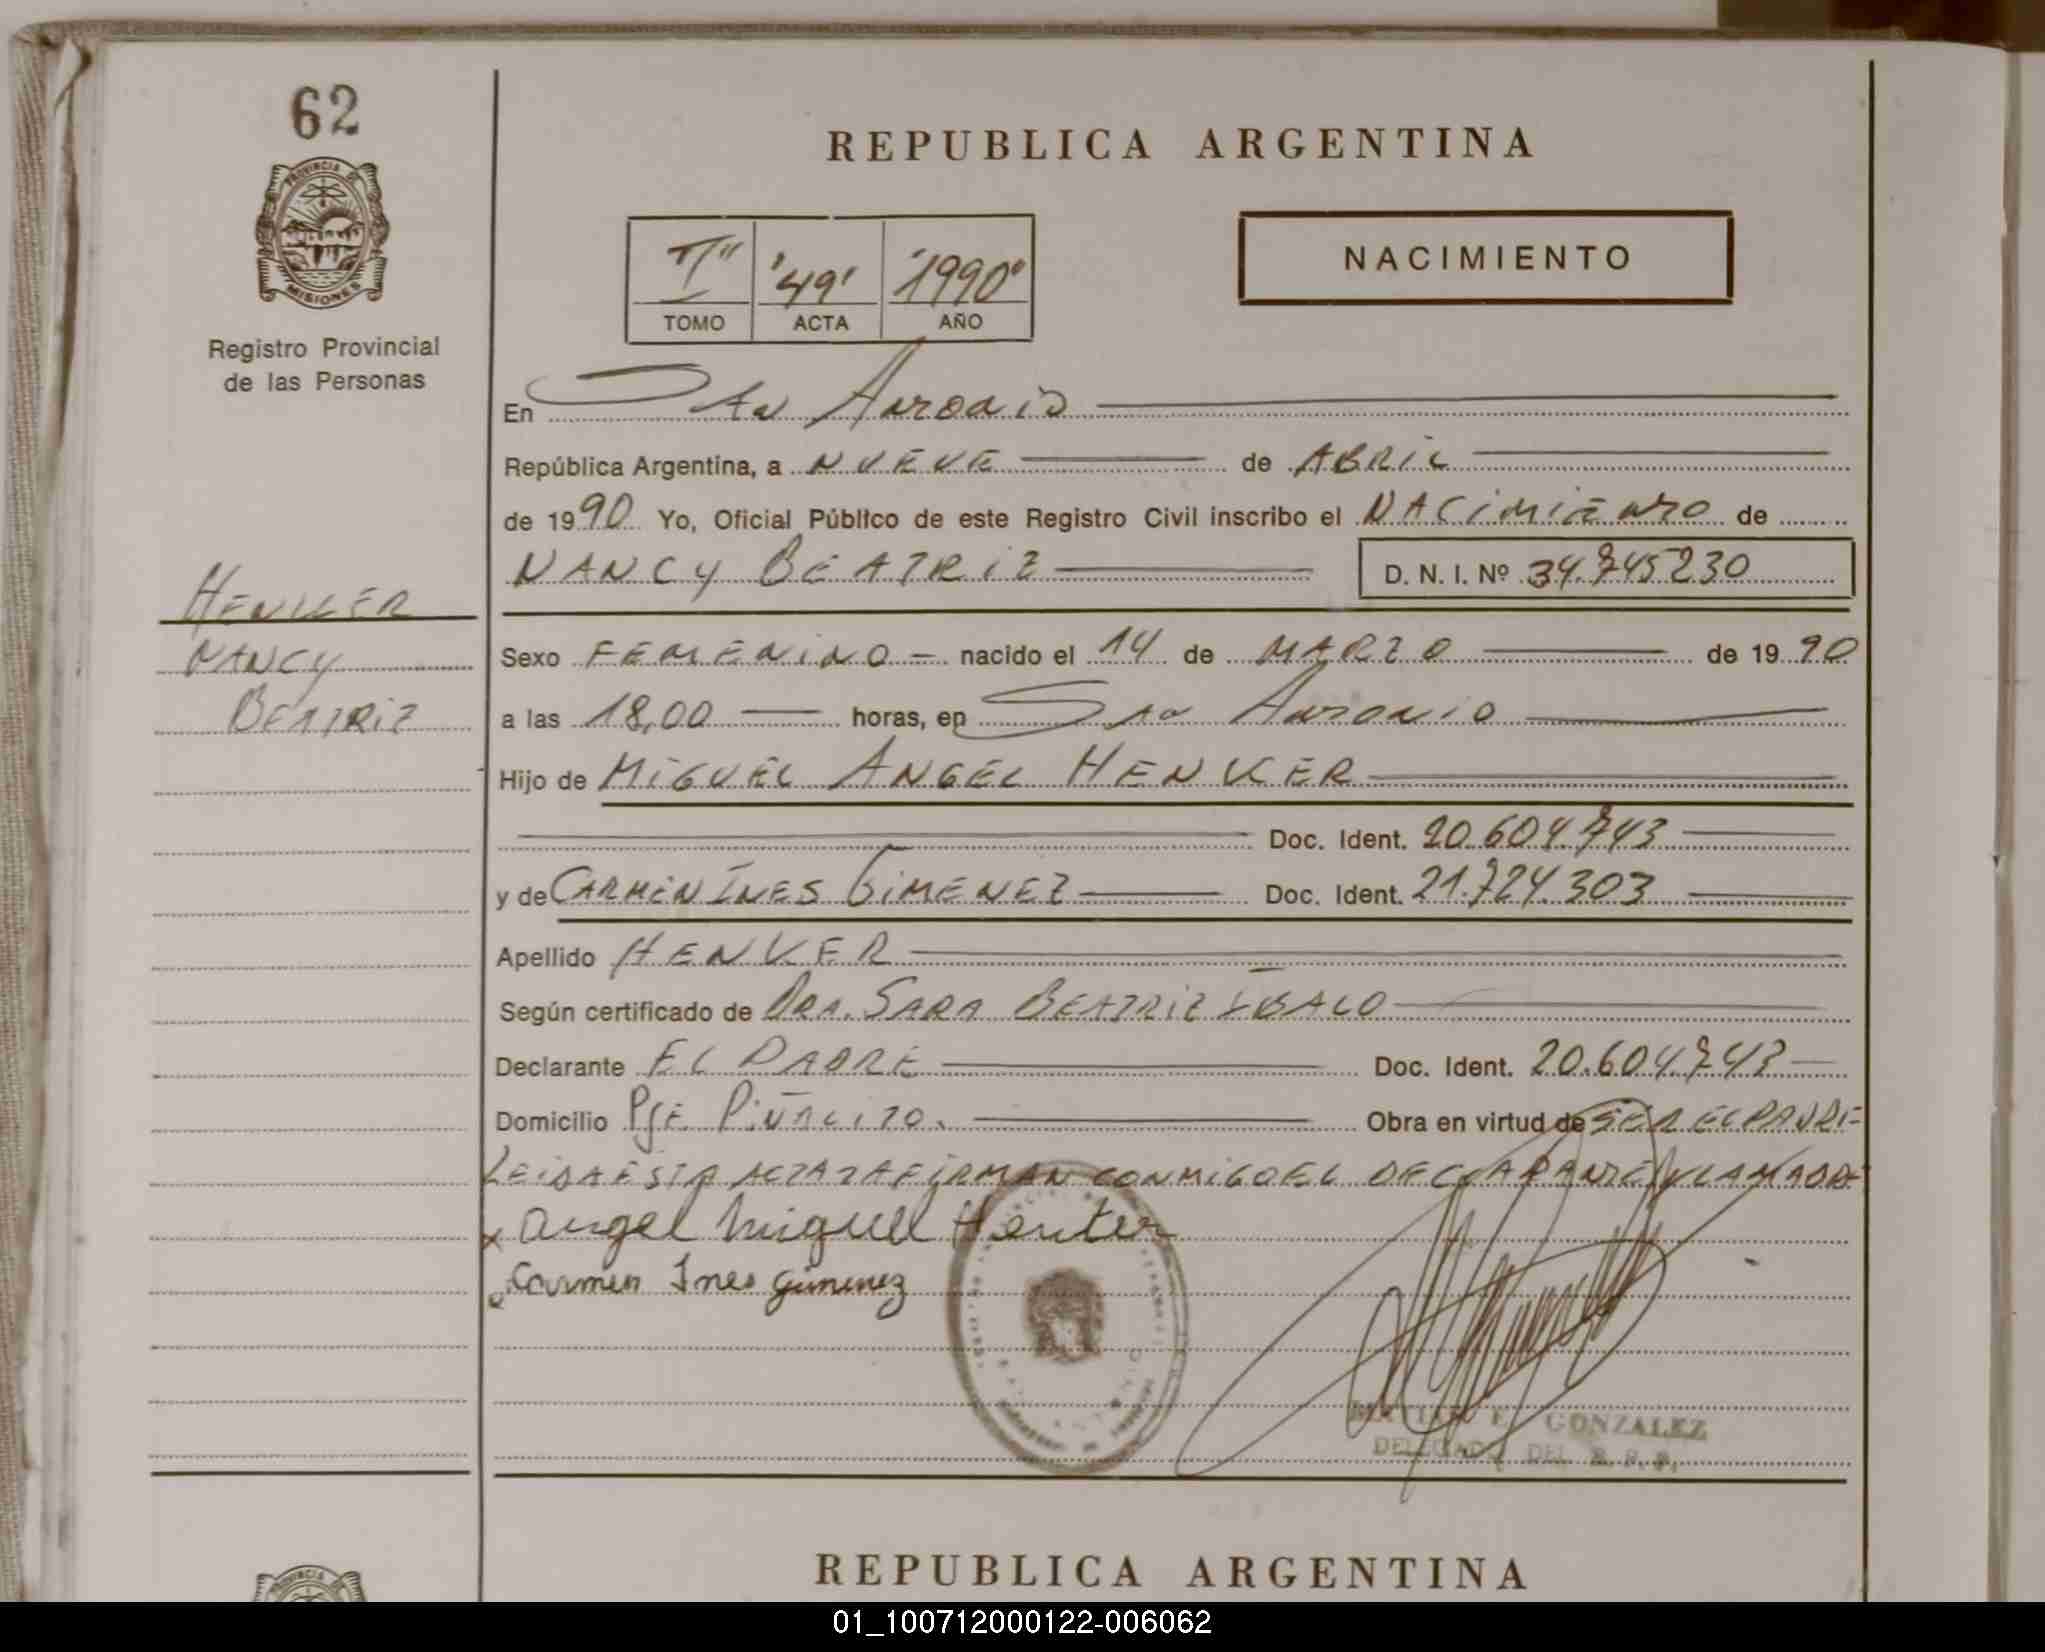 62
PROVINCIA DE
MISIONES
Registro Provincial
de las Personas
HENKER
NANCY
BEATRIZ
REPUBLICA ARGENTINA
I" '49' "1990"
TOMO ACTA AÑO
NACIMIENTO
En SAN ANTONIO
República Argentina, a NUEVE de ABRIL
de 1990 Yo, Oficial Público de este Registro Civil inscribo el NACIMIENTO de
NANCY BEATRIZ D. N. I. Nº 34.745230
Sexo FEMENINO - nacido el 14 de MARZO de 1990
a las 18,00 horas, en SAN ANTONIO
Hijo de MIGUEL ANGEL HENKER
Doc. Ident. 20.604.743
y de CARMEN INES GIMENEZ Doc. Ident. 21.724.303
Apellido HENKER
Según certificado de DRA. SARA BEATRIZ
Declarante EL PADRE Doc. Ident. 20.604.743
Domicilio PJE. PIÑALITO. Obra en virtud de SER EL PADRE
LEIDA ESTA ACTA FIRMAN CONMIGO EL DECLARANTE Y LA MADRE
x Angel Miguel Henker
Carmen Ines Gimenez
E. GONZALEZ
DELEGADO DEL R. P. P.
REPUBLICA ARGENTINA
PROVINCIA DE
01_100712000122-006062